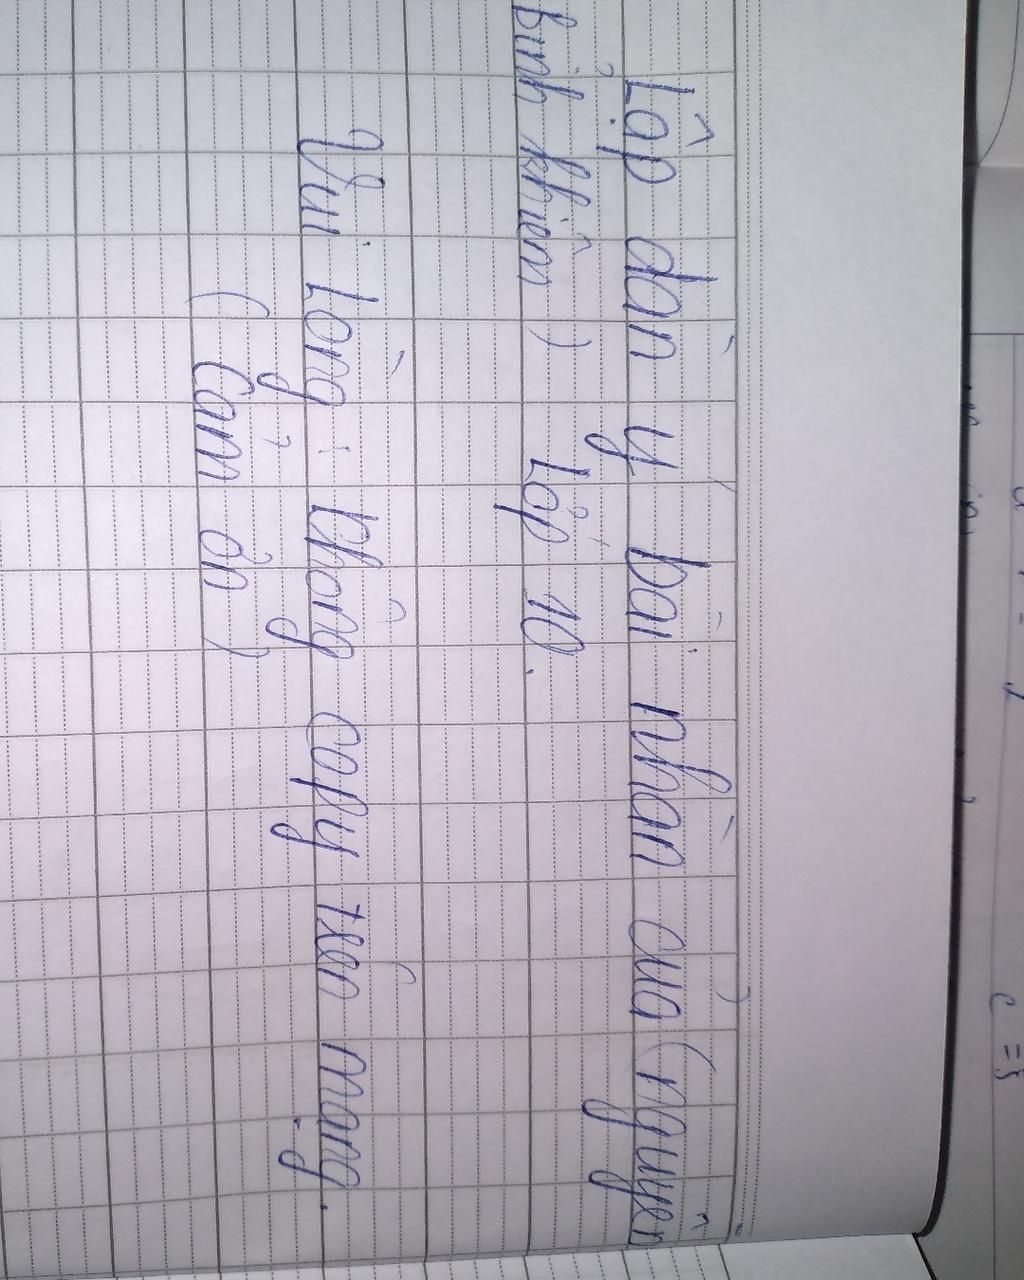 Lập dàn ý bài nhàn của (nguyễn
bỉnh khiêm) Lớp 10.
Vui Lòng: không copy trên mạng.
(Cảm ơn)